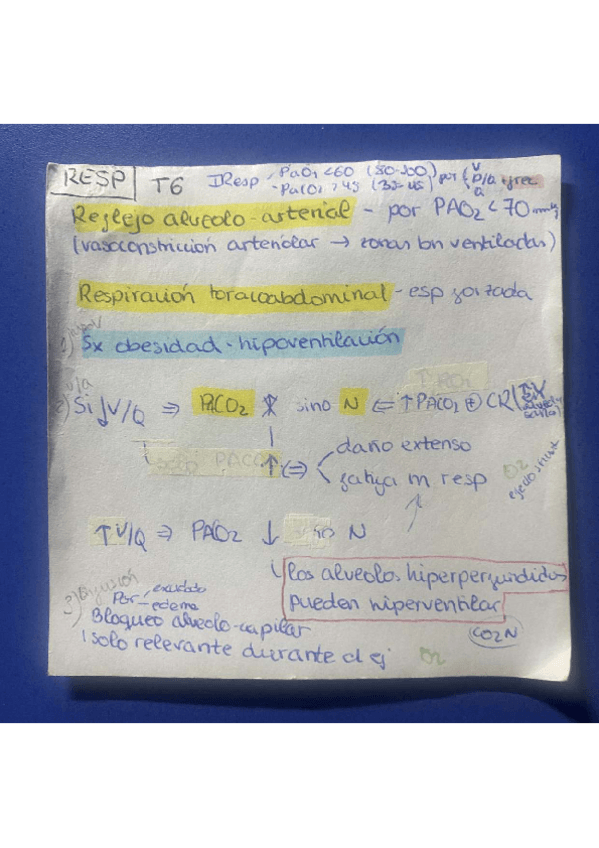 RESP T6 IResp PaO2 <60 (80-100) por V/Q
- PaCO2 >45 (35-45)
Reflejo alveolo-arterial - por PAO2 <70 mmHg
(vasoconstricion arteriolar → zonas bn ventiladas)
Respiración toracoabdominal - esp forzada
1) hipoV
Sx obesidad-hipoventilación
2) Si ↓V/Q ⇒ PACO2 sino N ⇐ ↑PACO2 ⊕ CR
↑ ⇔ daño extenso
fatiga m. resp
O2
↑V/Q ⇒ PAO2 ↓ sino N
los alveolos hiperperfundidos
pueden hiperventilar
CO2N
3) Difusión
Por - exudado
- edema
Bloqueo alveolo-capilar
solo relevante durante el ej O2